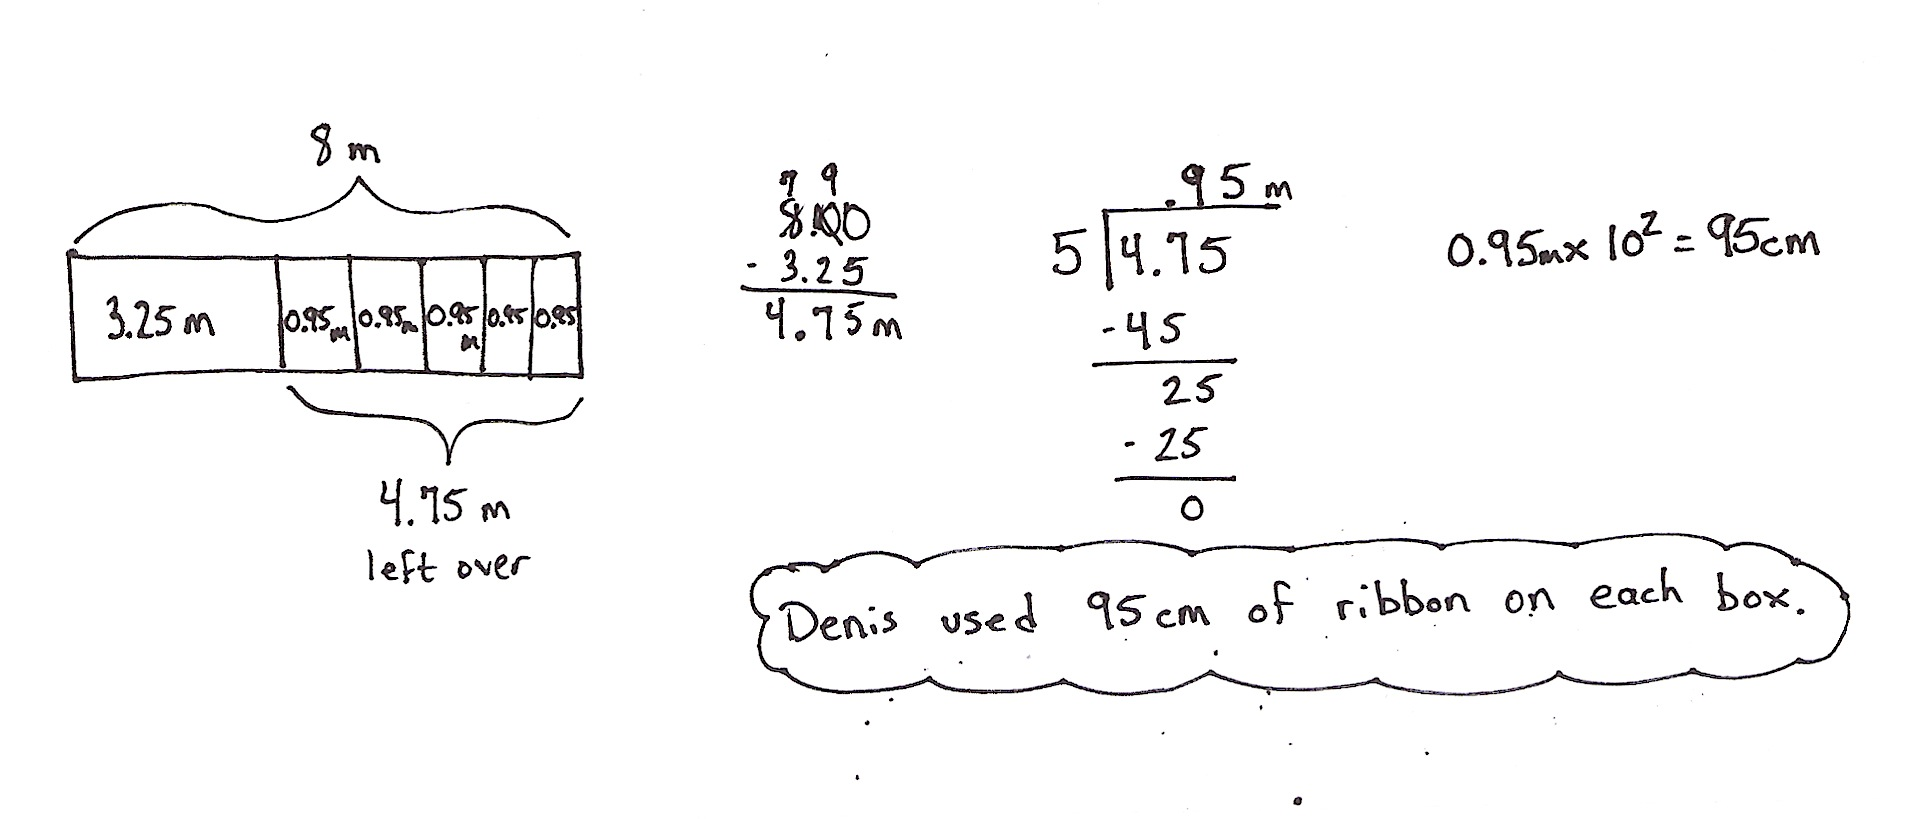 8 m
3.25 m 0.95 m 0.95 m 0.95 m 0.95 0.95
4.75 m
left over
7 9
8.00
- 3.25
4.75 m
.95 m
5 4.75
-45
25
- 25
0
0.95m x 10² = 95cm
Denis used 95 cm of ribbon on each box.